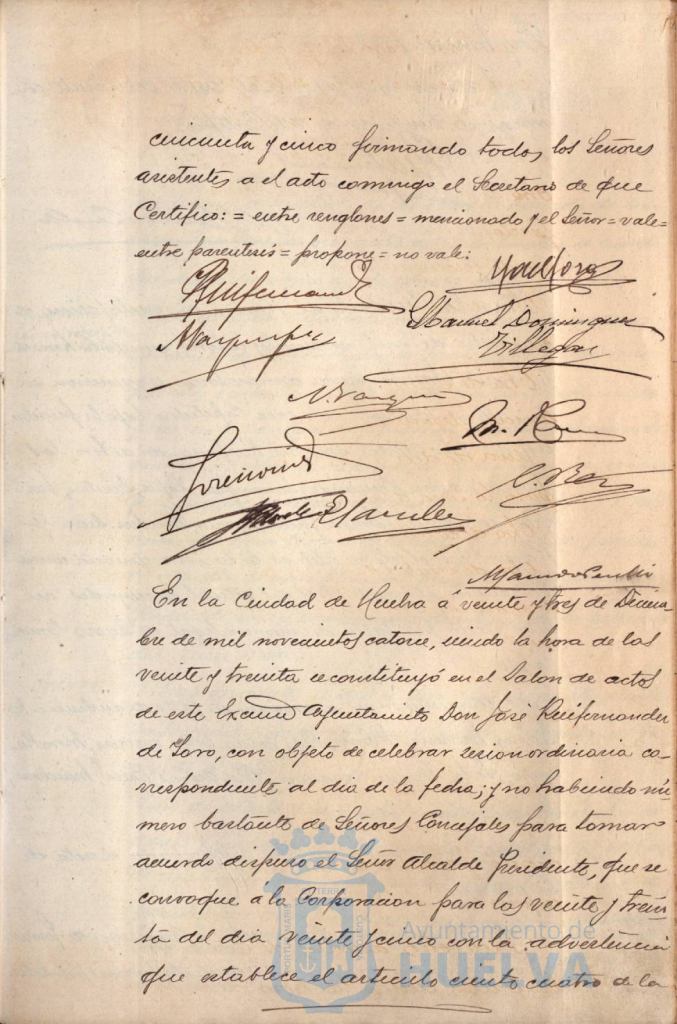 cincuenta y cinco firmando todos los Señores
asistentes a el acto conmigo el Secretario de que
Certifico: = entre renglones = mencionado y el Señor = vale =
entre parentesis = propone = no vale:
Manuel Dominguez
Villegas
En la Ciudad de Huelva á veinte y tres de Diciem-
bre de mil novecientos catorce, siendo la hora de las
veinte y treinta se constituyó en el Salon de actos
de este Excmo Ayuntamiento Don José Ruifernandez
de Toro, con objeto de celebrar sesion ordinaria co-
rrespondiente al dia de la fecha; y no habiendo nú-
mero bastante de Señores Concejales para tomar
acuerdo dispuso el Señor Alcalde Presidente, que se
convoque a la Corporacion para las veinte y trein-
ta del dia veinte y cinco con la advertencia
que establece el articulo ciento cuatro de la
Ayuntamiento de
HUELVA